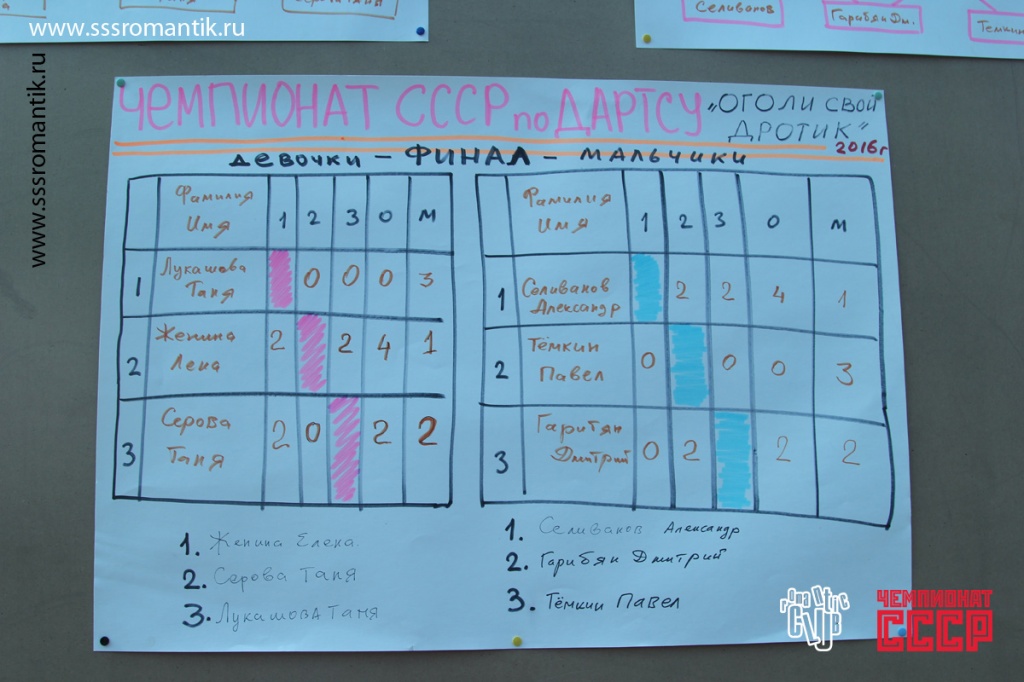 www.sssromantik.ru
www.sssromantik.ru
Селиванов
Гарибян Дм.
Тёмкин
ЧЕМПИОНАТ СССР по ДАРТСУ „ОГОЛИ СВОЙ
ДРОТИК“
2016г
девочки – ФИНАЛ – мальчики
Фамилия Имя 1 2 3 О М
1 Лукашова Таня 0 0 0 3
2 Женина Лена 2 2 4 1
3 Серова Таня 2 0 2 2
Фамилия Имя 1 2 3 О М
1 Селиванов Александр 2 2 4 1
2 Тёмкин Павел 0 0 0 3
3 Гаритян Дмитрий 0 2 2 2
1. Женина Елена
2. Серова Таня
3. Лукашова Таня
1. Селиванов Александр
2. Гарибян Дмитрий
3. Тёмкин Павел
ЧЕМПИОНАТ
СССР